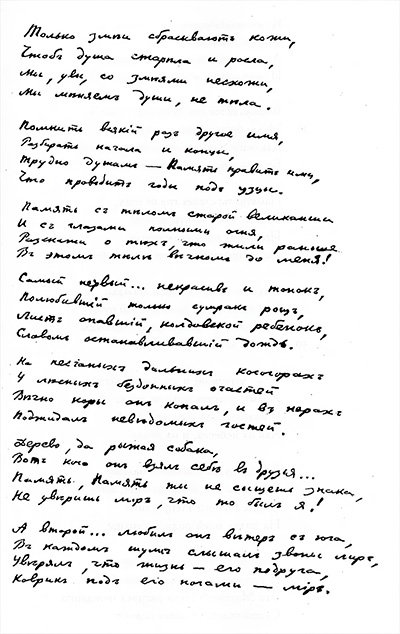 Только змѣи сбрасываютъ кожи,
Чтобъ душа старѣла и росла,
Мы, увы, со змѣями несхожи,
Мы мѣняемъ души, не тѣла.
Помнить всякій разъ другое имя,
Разбирать начала и концы,
Трудно думамъ — Память правитъ ими,
Что проводитъ годы подъ узцы.
Память съ тѣломъ старой великанши
И съ глазами полными огня,
Разскажи о тѣхъ, что жили раньше
Въ этомъ тѣлѣ вѣчномъ до меня!
Самый первый... некрасивъ и тонокъ,
Полюбившій только сумракъ рощъ,
Листъ опавшій, колдовской ребенокъ,
Словомъ останавливавшій дождь.
На песчаныхъ дальнихъ косогорахъ
У лѣсныхъ бездонныхъ
Вѣчно норы онъ копалъ, и въ норахъ
Поджидалъ невѣдомыхъ гостей.
Дерево, да рыжая собака,
Вотъ кого онъ взялъ себѣ въ друзья...
Память, Память ты не сыщешь знака,
Не увѣришь міръ, что то былъ я!
А второй... любилъ онъ вѣтеръ съ юга,
Въ каждомъ шумѣ слышалъ звоны лиръ,
Увѣрялъ, что жизнь — его подруга,
Коврикъ подъ его ногами — міръ.